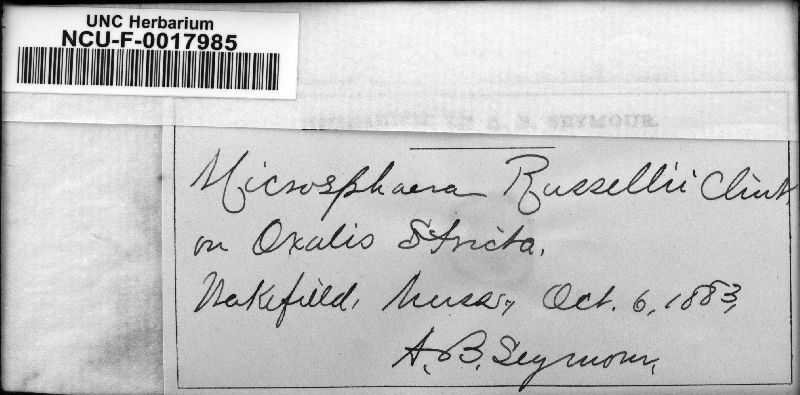 UNC Herbarium
NCU-F-0017985
HERBARIUM OF A. B. SEYMOUR.
Microsphaera Russellii Clint.
on Oxalis Stricta.
Wakefield, Mass., Oct. 6, 1883,
A. B. Seymour.